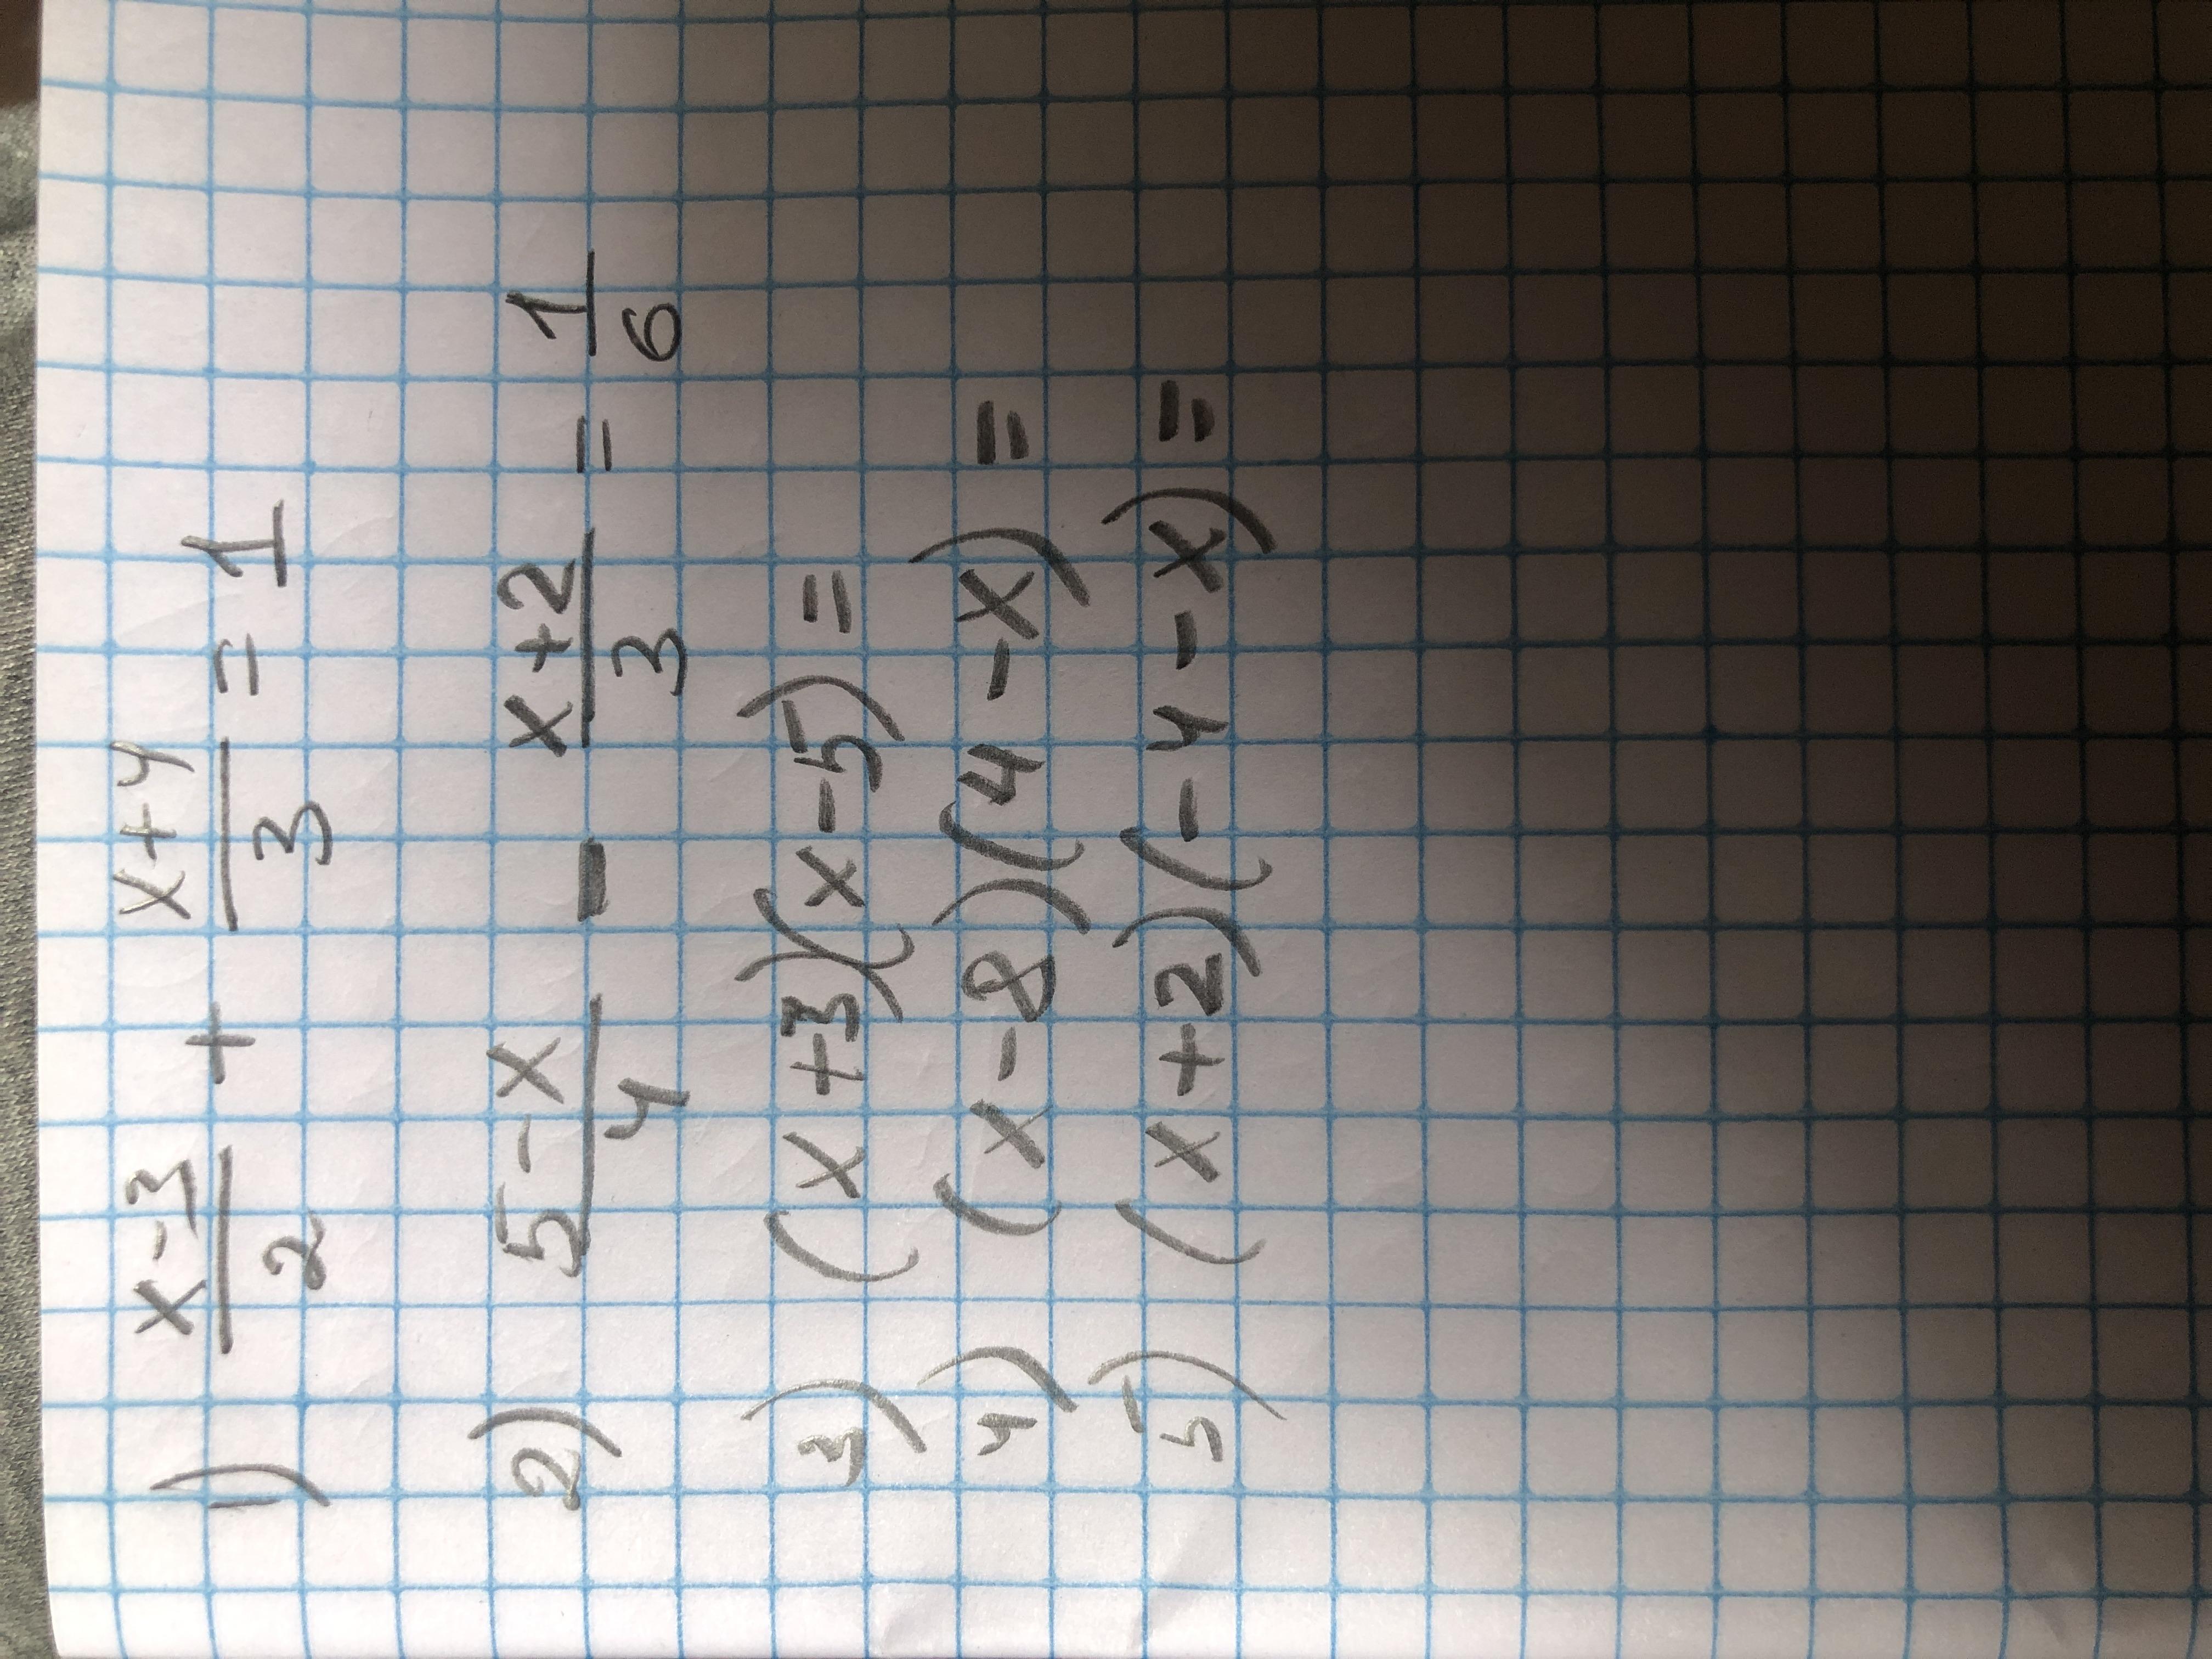 1) (x-3)/2 + (x+4)/3 = 1
2) (5-x)/4 - (x+2)/3 = 1/6
3) (x+3)(x-5) =
4) (x-8)(4-x) =
5) (x+2)(-4-x) =